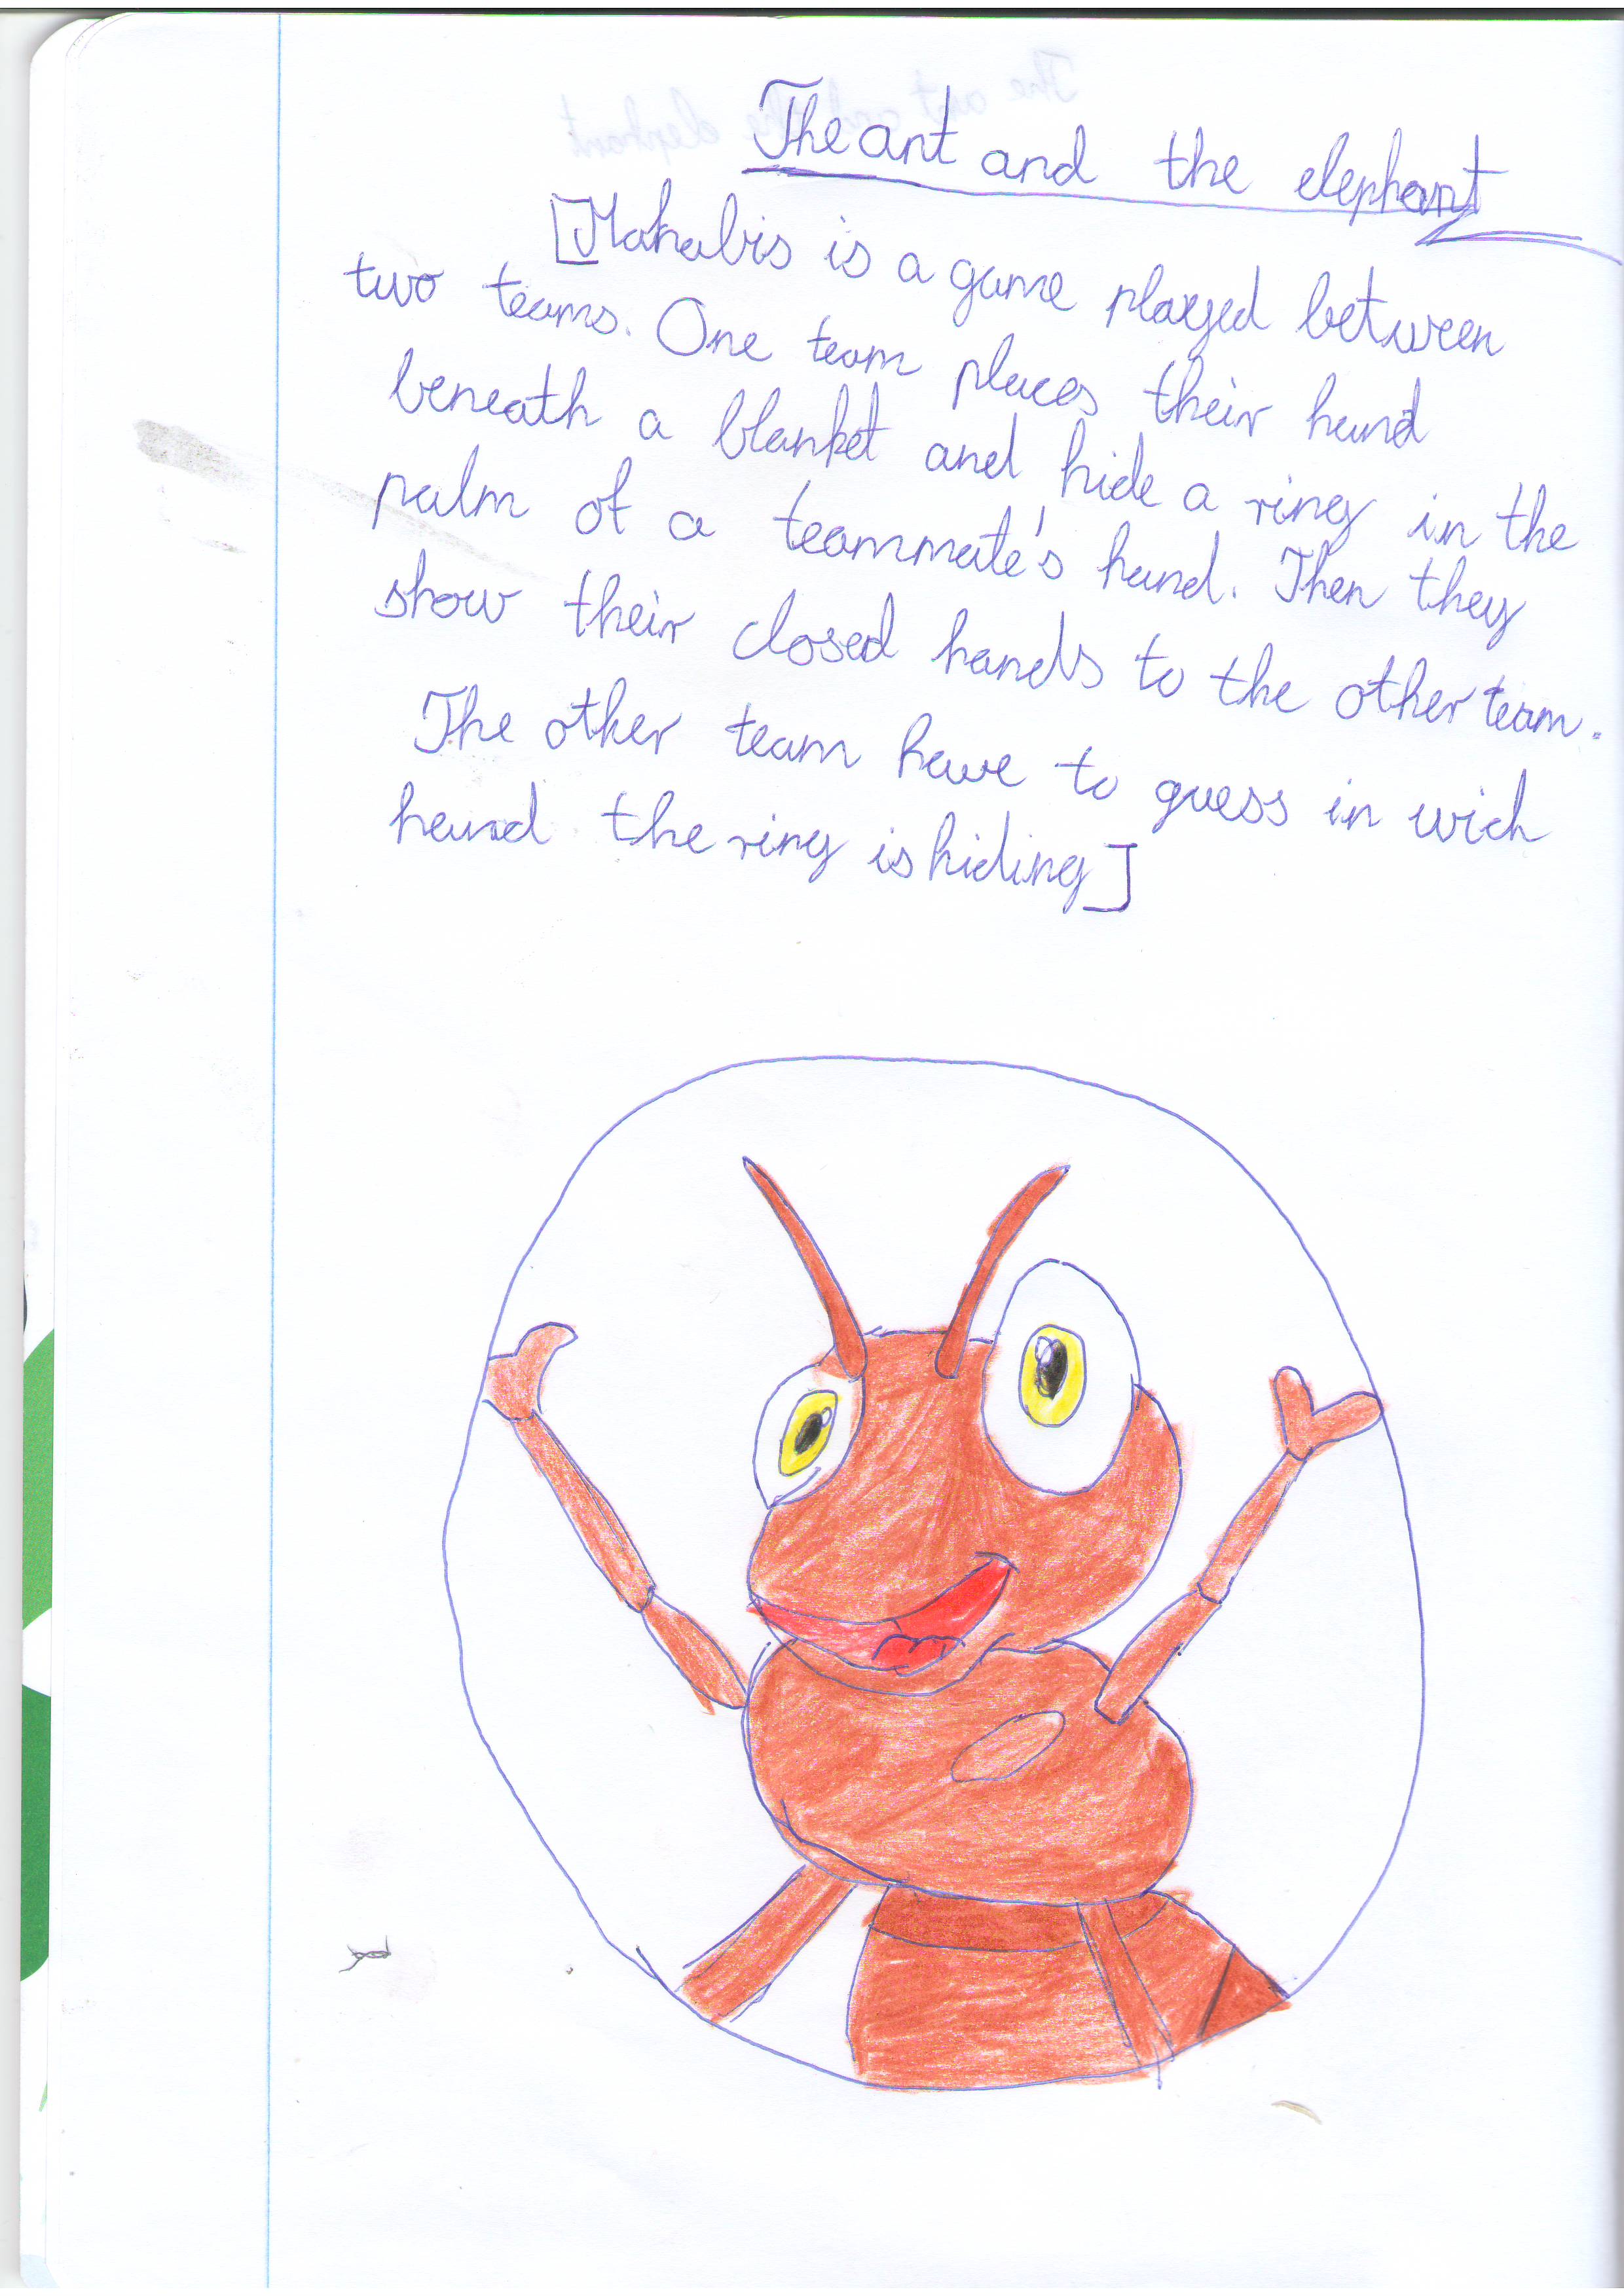 The ant and the elephant
[Mahabis is a game played between
two teams. One team places their hand
beneath a blanket and hide a ring in the
palm of a teammate's hand. Then they
show their closed hands to the other team.
The other team have to guess in wich
hand the ring is hiding]